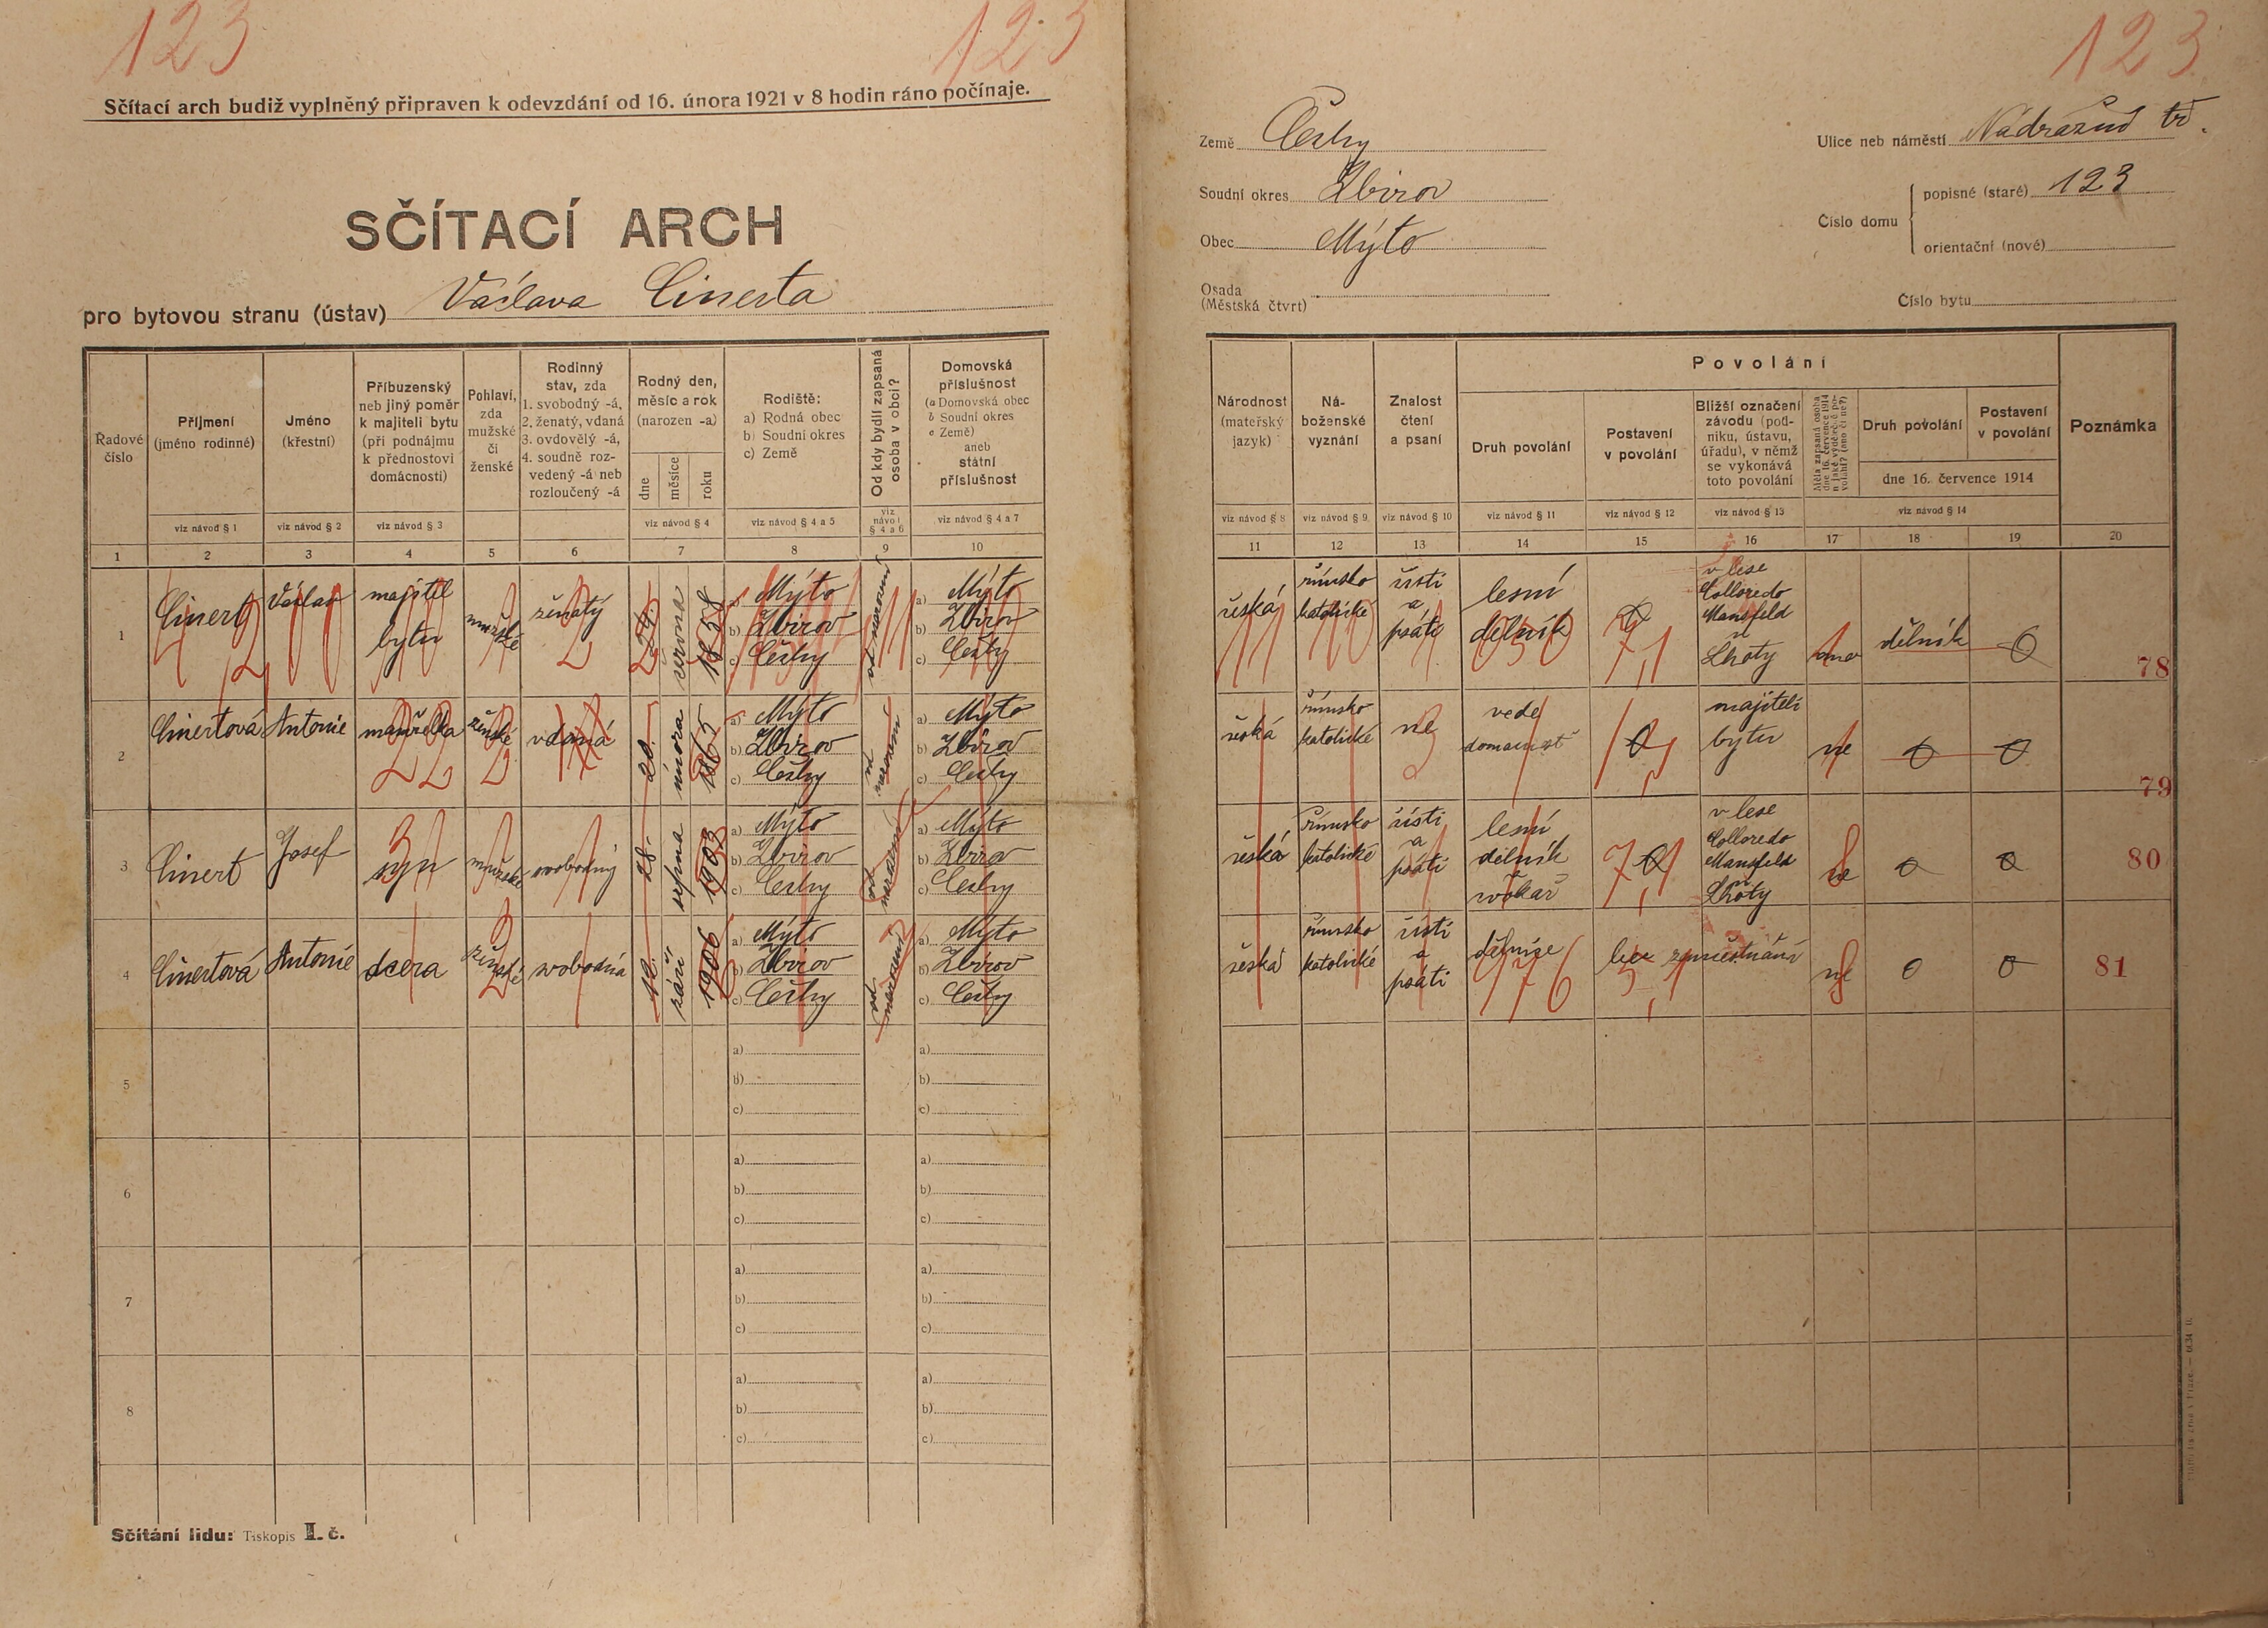 123
123
123
Sčítací arch budiž vyplněný připraven k odevzdání od 16. února 1921 v 8 hodin ráno počínaje.
SČÍTACÍ ARCH
pro bytovou stranu (ústav) Václava Cinerta
Země Čechy
Soudní okres Zbirov
Obec Mýto
Osada
(Městská čtvrť)
Ulice neb náměstí Nádražní tř.
Číslo domu
popisné (staré) 123
orientační (nové)
Číslo bytu
Řadové
číslo
Příjmení
(jméno rodinné)
viz návod § 1
Jméno
(křestní)
viz návod § 2
Příbuzenský
neb jiný poměr
k majiteli bytu
(při podnájmu
k přednostovi
domácnosti)
viz návod § 3
Pohlaví,
zda
mužské
či
ženské
Rodinný
stav, zda
1. svobodný -á,
2. ženatý, vdaná
3. ovdovělý -á,
4. soudně roz-
vedený -á neb
rozloučený -á
Rodný den,
měsíc a rok
(narozen -a)
dne
měsíce
roku
viz návod § 4
Rodiště:
a) Rodná obec
b) Soudní okres
c) Země
viz návod § 4 a 5
Od kdy bydlí zapsaná
osoba v obci?
viz
návod
§ 4 a 6
Domovská
příslušnost
(a Domovská obec
b Soudní okres
c Země)
aneb
státní
příslušnost
viz návod § 4 a 7
Národnost
(mateřský
jazyk)
viz návod § 8
Ná-
boženské
vyznání
viz návod § 9
Znalost
čtení
a psaní
viz návod § 10
Povolání
Druh povolání
viz návod § 11
Postavení
v povolání
viz návod § 12
Bližší označení
závodu (pod-
niku, ústavu,
úřadu), v němž
se vykonává
toto povolání
viz návod § 13
Měla zapsaná osoba
dne 16. července 1914
Druh povolání
Postavení
v povolání
dne 16. července 1914
viz návod § 14
Poznámka
1 2 3 4 5 6 7 8 9 10
11 12 13 14 15 16 17 18 19 20
1 Cinert Václav majitel bytu mužské ženatý 24. června 1858
a) Mýto
b) Zbirov
c) Čechy
od narození
a) Mýto
b) Zbirov
c) Čechy
česká
římsko
katolické
čísti
a
psáti
lesní
dělník
v lese
Colloredo
Mansfeld
Lhoty
ano dělník 0
78
2 Cinertová Antonie manželka ženské vdaná 20. února 1865
a) Mýto
b) Zbirov
c) Čechy
od narození
a) Mýto
b) Zbirov
c) Čechy
česká
římsko
katolické
ne
vede
domácnost
0
majiteli
bytu
ne 0 0
79
3 Cinert Josef syn mužské svobodný 28. srpna 1903
a) Mýto
b) Zbirov
c) Čechy
od narození
a) Mýto
b) Zbirov
c) Čechy
česká
římsko
katolické
čísti
a
psáti
lesní
dělník
v lese
Colloredo
Mansfeld
Lhoty
ne 0 0
80
4 Cinertová Antonie dcera ženské svobodná 12. září 1906
a) Mýto
b) Zbirov
c) Čechy
od narození
a) Mýto
b) Zbirov
c) Čechy
česká
římsko
katolické
čísti
a
psáti
dělnice
976
bez zaměstnání
ne 0 0
81
5
a)
b)
c)
a)
b)
c)
6
a)
b)
c)
a)
b)
c)
7
a)
b)
c)
a)
b)
c)
8
a)
b)
c)
a)
b)
c)
Sčítání lidu: Tiskopis I. č.